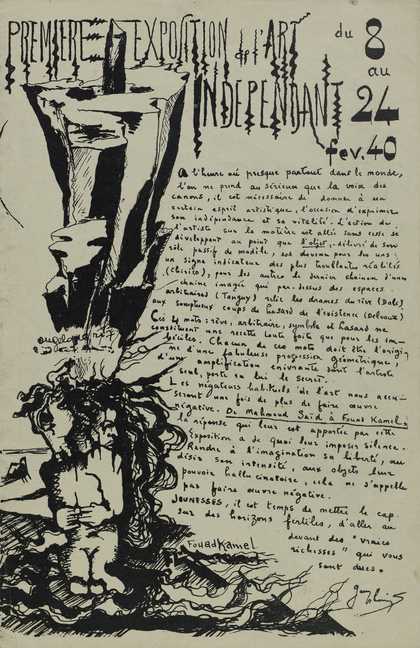 PREMIERE EXPOSITION de L'ART
INDEPENDANT
du 8
au
24
fev. 40
A l'heure où presque partout dans le monde,
l'on ne prend au sérieux que la voix des
canons, il est nécessaire de donner à un
certain esprit artistique, l'occasion d'exprimer
son indépendance et sa vitalité. L'action de
l'artiste sur la matière est allée sans cesse se
développant au point que l'objet, délivré de son
rôle passif de modèle, est devenu pour les uns:
un signe indicateur des plus troublantes réalités
(Chirico), pour les autres le dernier chaînon d'une
chaîne imagée qui par-dessus des espaces
arbitraires (Tanguy) relie les drames du rêve (Dali)
aux somptueux coups de hasard de l'existence (Delvaux)
Ces 4 mots: rêve, arbitraire, symbole et hasard ne
constituent une recette toute faite que pour les im-
béciles. Chacun de ces mots doit être l'origi-
ne d'une fabuleuse progression géométrique,
d'une amplification enivrante dont l'artiste
seul, porte en lui le secret.
Les négateurs habituels de l'art nous accu-
seront une fois de plus de faire œuvre
négative. De Mahmoud Saïd à Fouad Kamel,
la réponse qui leur est apportée par cette
Exposition a de quoi leur imposer silence.
Rendre à l'imagination sa liberté, au
désir son intensité, aux objets leur
pouvoir hallucinatoire, cela ne s'appelle
pas faire œuvre négative.
JEUNESSES, il est temps de mettre le cap
sur des horizons fertiles, d'aller au
devant des "vraies
richesses" qui vous
sont dues.
Fouad Kamel